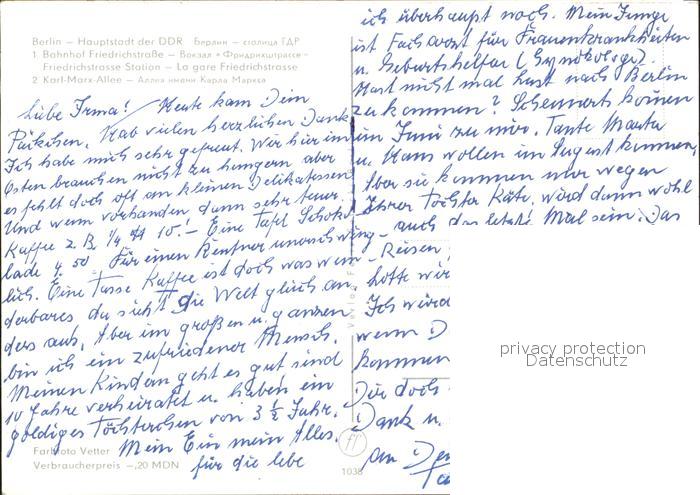 Berlin – Hauptstadt der DDR Берлин – столица ГДР
1 Bahnhof Friedrichstraße – Вокзал «Фридрихштрассе» –
Friedrichstrasse Station – La gare Friedrichstrasse
2 Karl-Marx-Allee – Аллея имени Карла Маркса
Liebe Irma! Heute kam Dein
Päckchen. Hab vielen herzlichen Dank
Ich habe mich sehr gefreut. Wir hier im
Osten brauchen nicht zu hungern aber
es fehlt doch oft an kleinen Delikatessen
Und wenn vorhanden, dann sehr teuer.
Kaffee z. B. 1/4 10.– Eine Tafel Schoko
lade 4.50 Für einen Rentner unerschwing-
lich. Eine Tasse Kaffee ist doch was wun-
derbares da sieht die Welt gleich an
ders aus. Aber im großen u. ganzen
bin ich ein zufriedener Mensch.
Meinen Kindern geht es gut sind
10 Jahre verheiratet u. haben ein
goldiges Töchterchen von 3 1/2 Jahr.
Mein Ein mein Alles,
für die lebe
Farbfoto Vetter
Verbraucherpreis –,20 MDN
1038
Verlag
ich überhaupt noch. Mein Junge
ist Facharzt für Frauenkrankheiten
u. Geburtshelfer (Gynokologe).
Hast nicht mal Lust nach Berlin
zu kommen? Schennerts kommen
im Juni zu mir. Tante Marta
u. Hans wollen im August kommen,
Aber sie kommen nur wegen
Ihrer Tochter Käte, wird dann wohl
auch das letzte Mal sein. Das
Reisen
hätte wir
Ich würde
wenn D
kommen
Dir doch
Dank u.
an De
privacy protection
Datenschutz